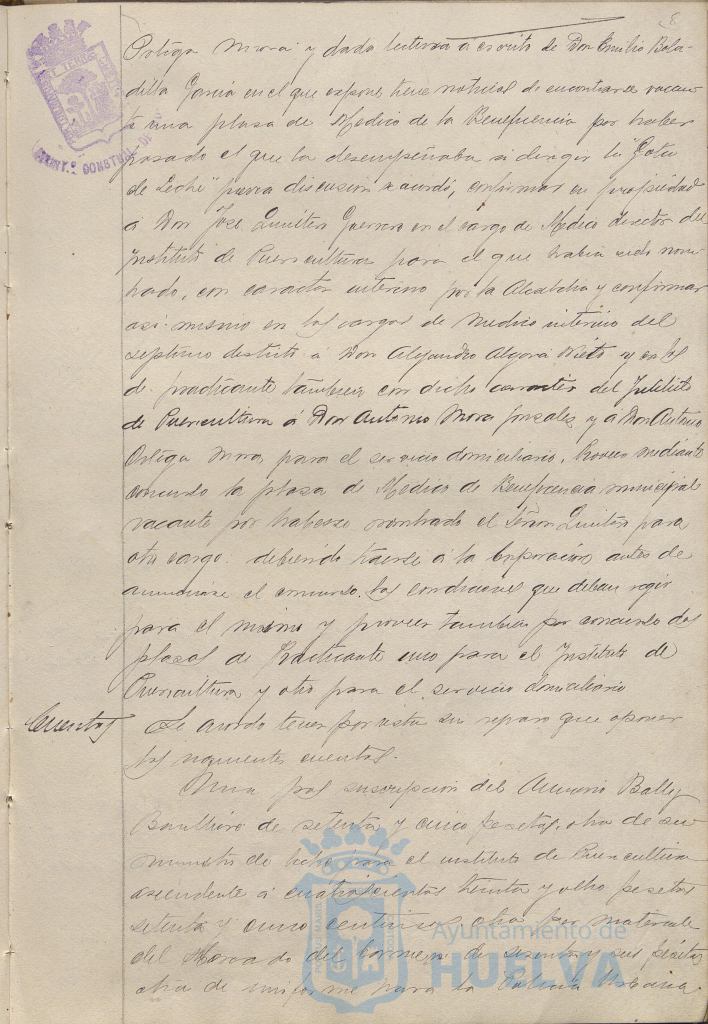 8
Ortega Mora y dada lectura a escrito de Don Emilio Boba-
dilla Garcia en el que expone tiene noticias de encontrarse vacan-
te una plaza de Medico de la Beneficencia por haber
pasado el que la desempeñaba a dirigir la "Gota
de Leche" previa discusion se acordó, confirmar en propiedad
á Don José Quintero Guerrero en el cargo de Medico Director del
Instituto de Puericultura para el que habia sido nom-
brado, con caracter interino por la Alcaldia y confirmar
asi mismo en los cargos de Medico interino del
septimo distrito á Don Alejandro Algora Nieto y en los
de practicante tambien con dicho caracter del Instituto
de Puericultura á Don Antonio Mora Gonzalez y a Don Antonio
Ortega Mora para el servicio domiciliario. Proveer mediante
concurso la plaza de Medico de Beneficencia municipal
vacante por haberse nombrado el Señor Quintero para
otro cargo: debiendo traerse á la Corporacion antes de
anunciarse el concurso, las condiciones que deban regir
para el mismo y proveer tambien por concurso dos
plazas de Practicante uno para el Instituto de
Puericultura y otro para el servicio domiciliario
Cuentas
Se acordo tener por vista sin reparo que oponer
las siguientes cuentas.
Una por suscripcion del Anuario Bailly
Bailliere de setenta y cinco pesetas, otra de su-
ministro de leche para el instituto de Puericultura
ascendente á cuatrocientas treinta y ocho pesetas
setenta y cinco centimos, otra por material
del Mercado del Carmen de sesenta y seis pesetas
otra de uniforme para la Policia Urbana.
Ayuntamiento de
HUELVA